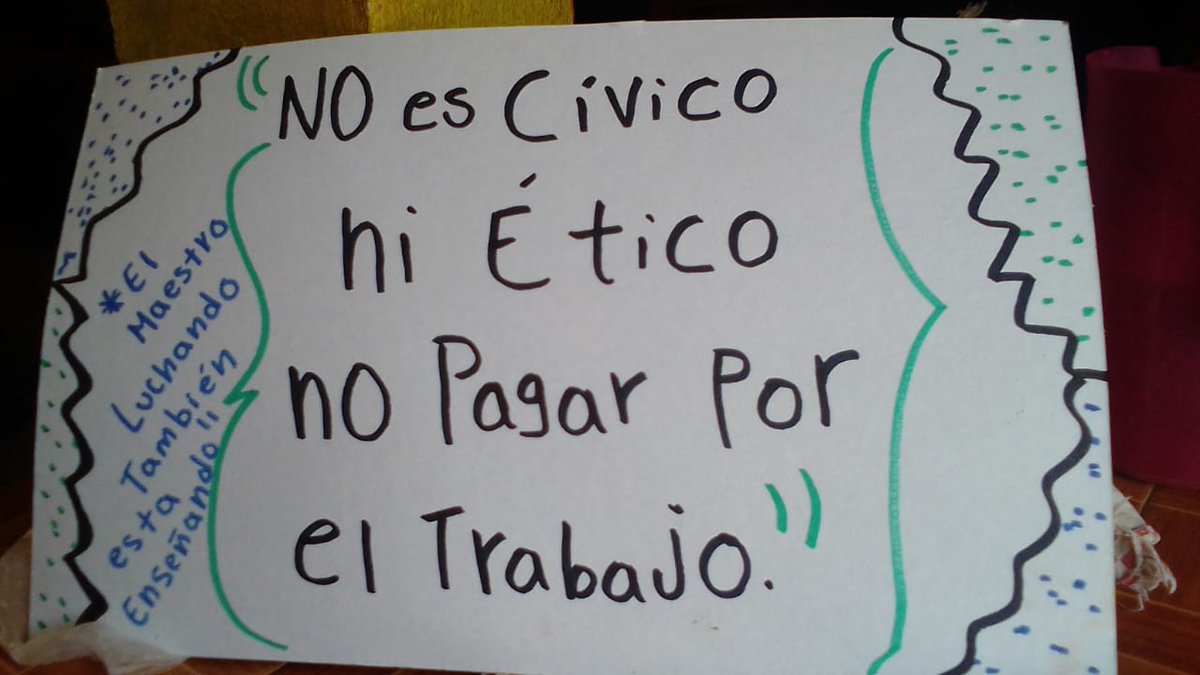 “NO es Cívico
ni Ético
no Pagar por
el Trabajo.”
*El
Maestro
Luchando
esta También
Enseñando"